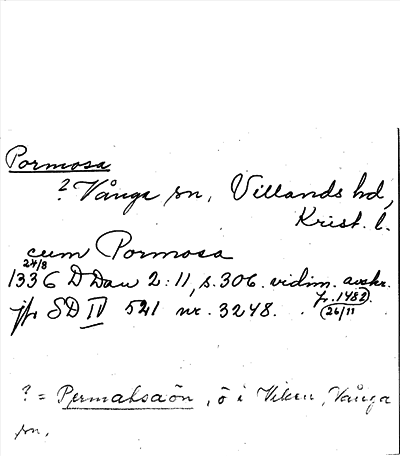 Pormosa
? Vånga sn, Villands hd,
Krist. l.
cum Pormosa
24/8
1336 D Dan 2:11, s. 306. vidim. avskr.
fr. 1482.
jfr SD IV 521 nr. 3248. (26/11)
? = Permaksaön, ö i Viken, Vånga
sn.